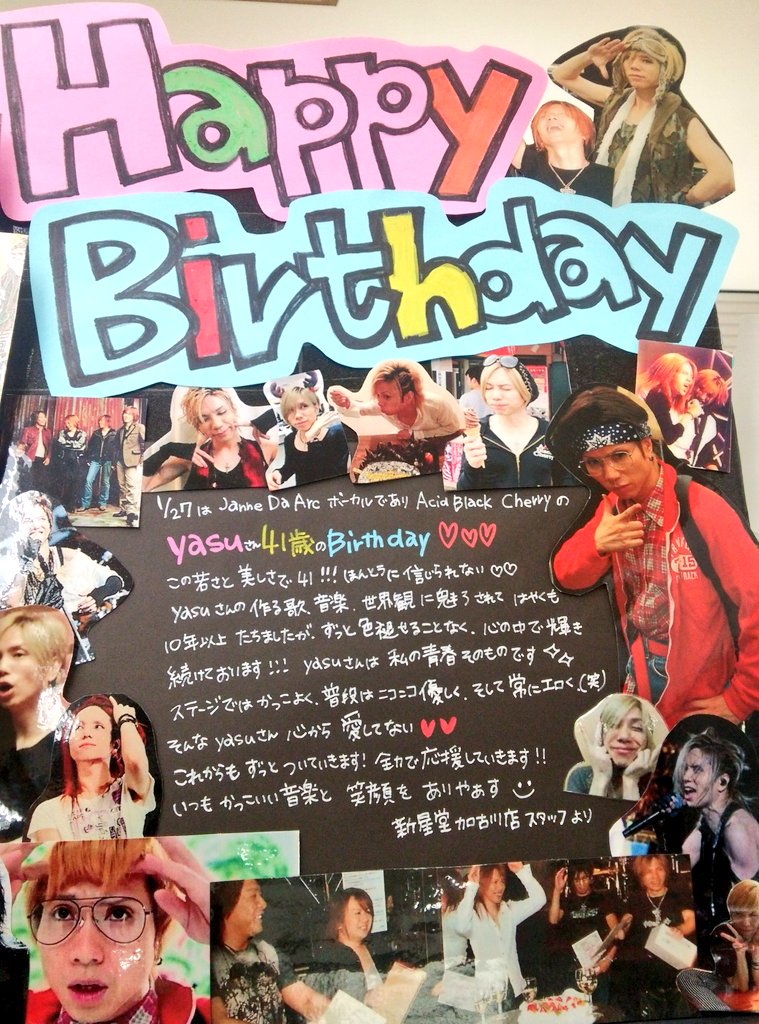 Happy
Birthday
1/27は Janne Da Arc ボーカルであり Acid Black Cherryの
yasuさん41歳のBirthday♡♡♡
この若さと美しさで41!!! ほんとうに信じられない♡♡
yasuさんの作る歌、音楽、世界観に魅了されて はやくも
10年以上 たちましたが、ずっと色褪せることなく、心の中で輝き
続けております!!! yasuさんは 私の青春そのものです
ステージではかっこよく、普段はニコニコ優しく、そして常にエロく、(笑)
そんなyasuさん 心から 愛してない♥♥
これからも ずっと ついていきます! 全力で応援していきます!!
いつも かっこいい音楽と 笑顔を ありやぁす
新星堂 加古川店 スタッフより